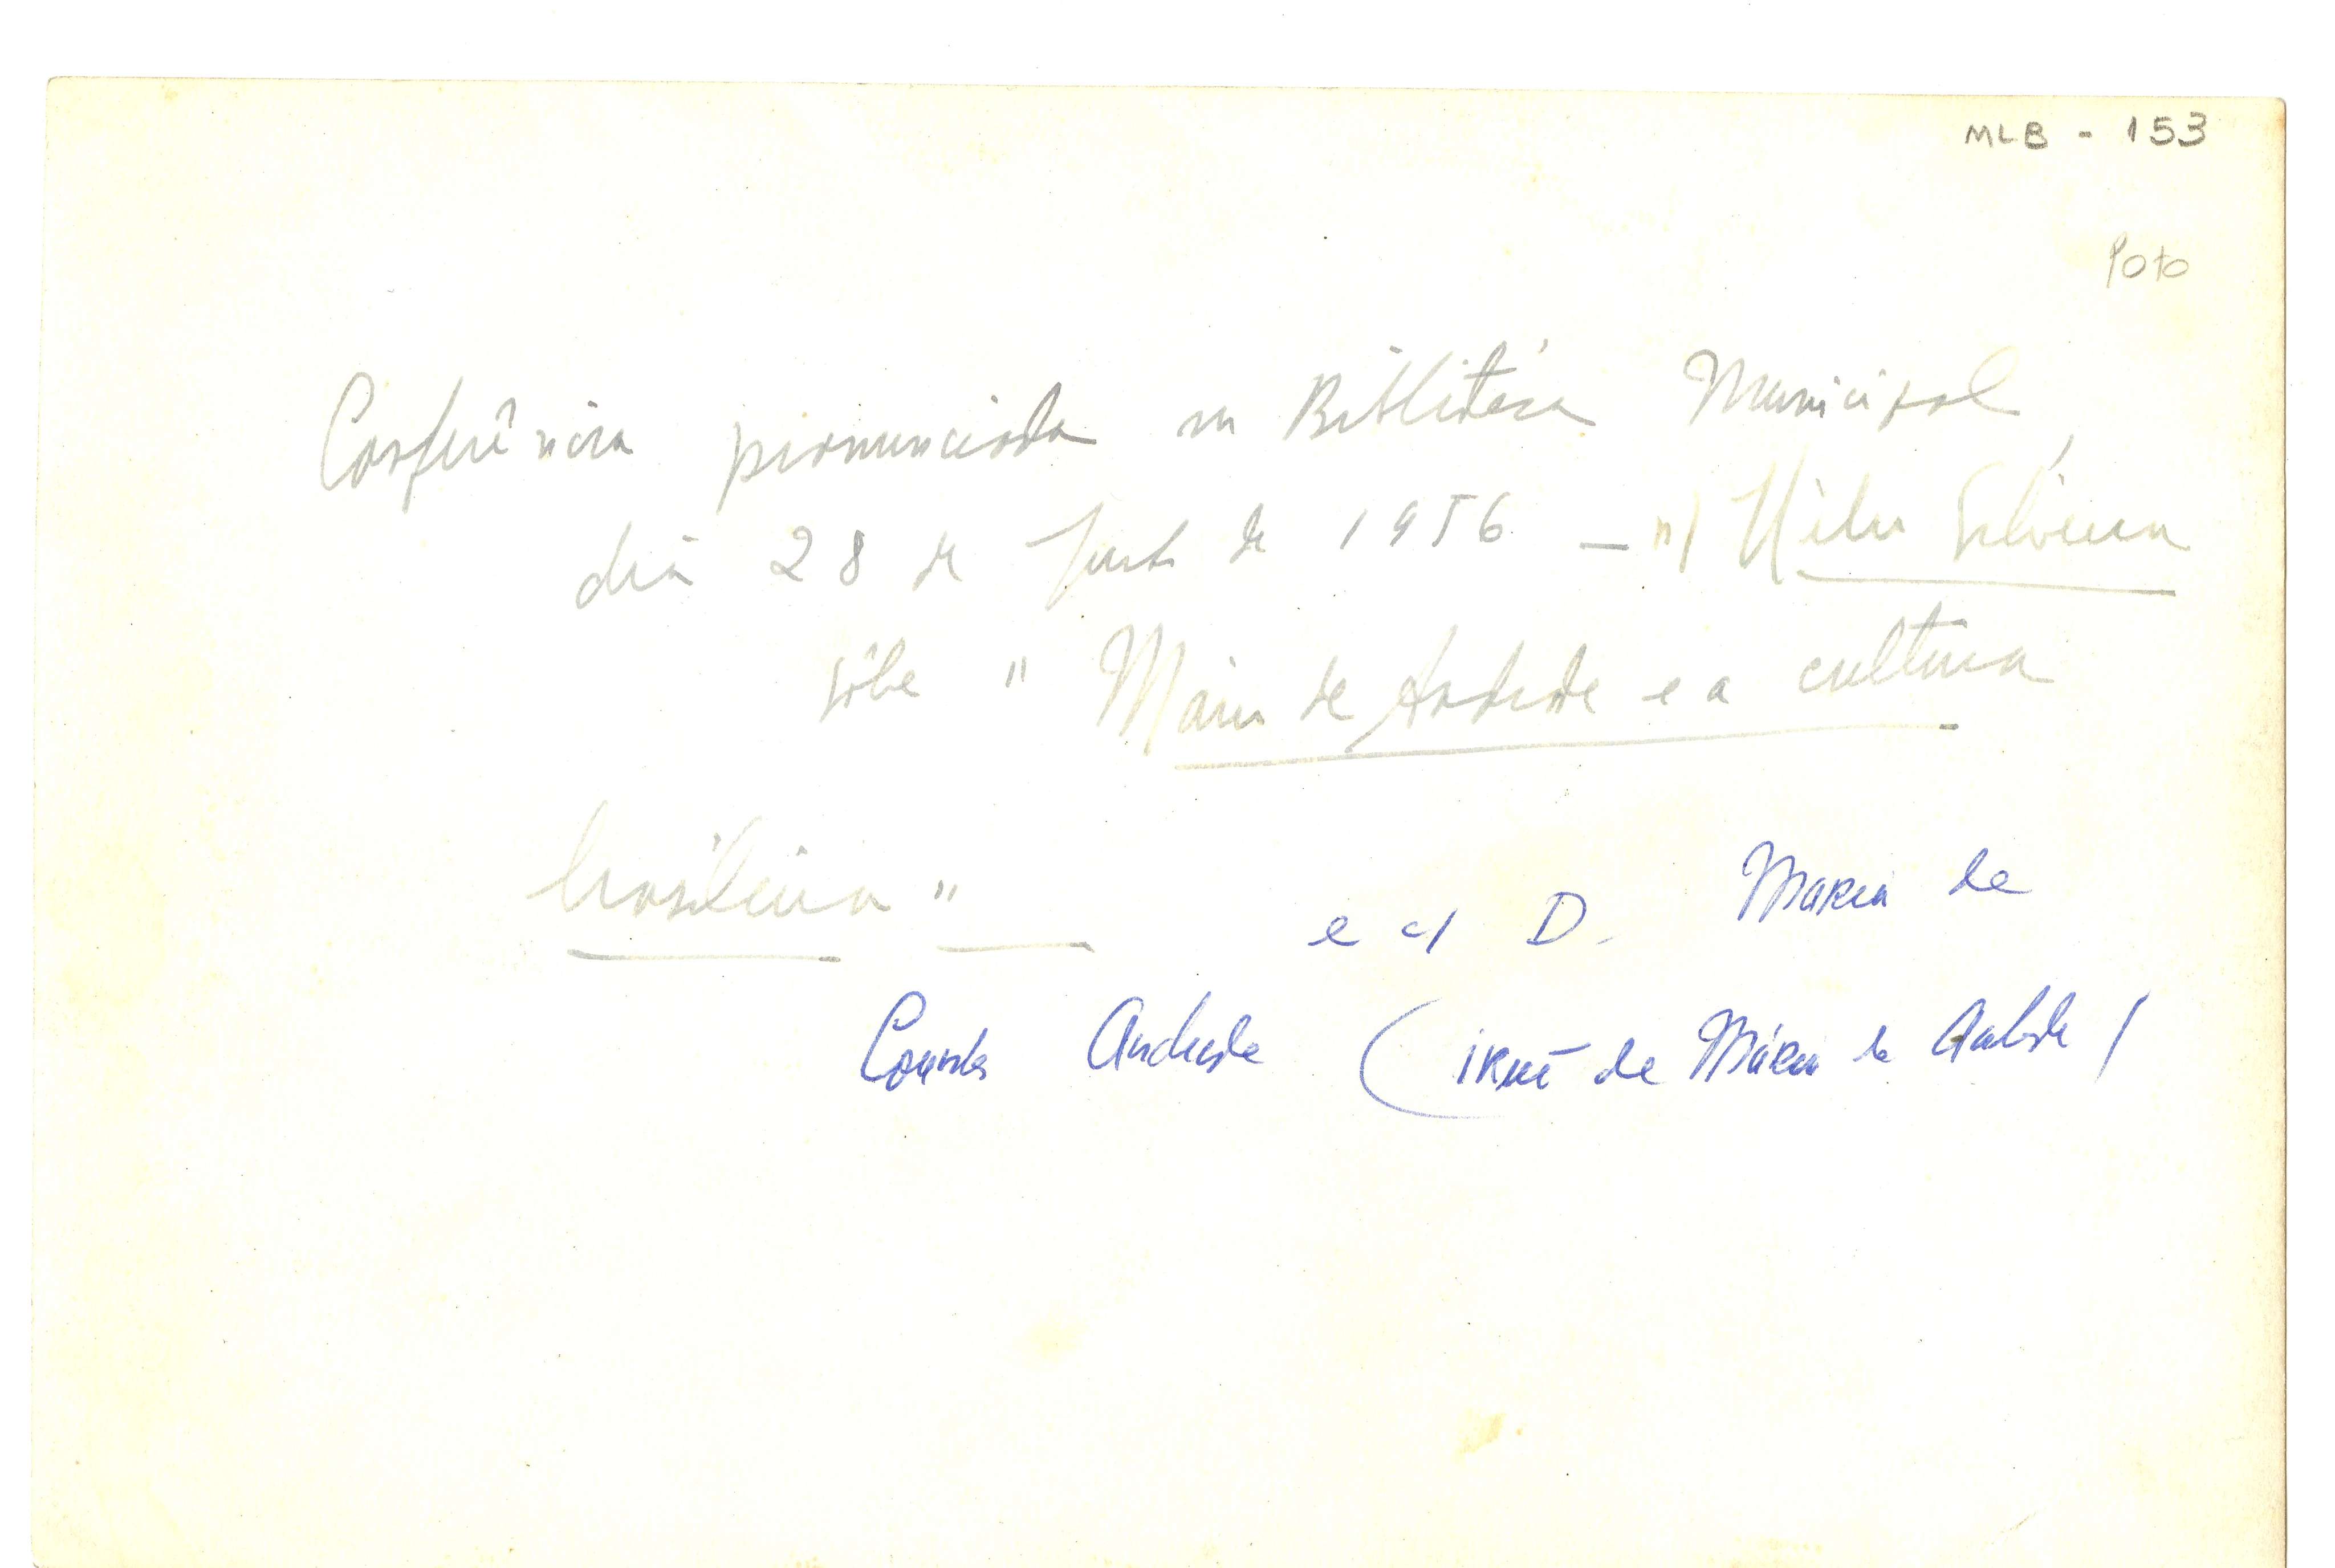 MLB - 153
Foto
Conferência pronunciada na Biblioteca Municipal,
dia 28 de de 1956 — Silveira
sôbre " Mário de Andrade e a cultura
brasileira "
e c/ D. Maria de
Lourdes Andrade ( irmã de Mário de Andrade )